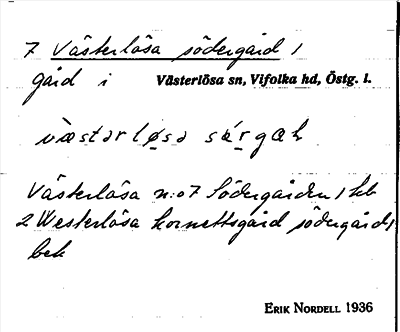 7 Västerlösa södergård 1
gård i Västerlösa sn, Vifolka hd, Östg. l.
västərløsa sǽrgaɦ
Västerlösa n:o 7 Södergården 1 hb
2 Westerlösa kornettsgård södergård,
bek
ERIK NORDELL 1936